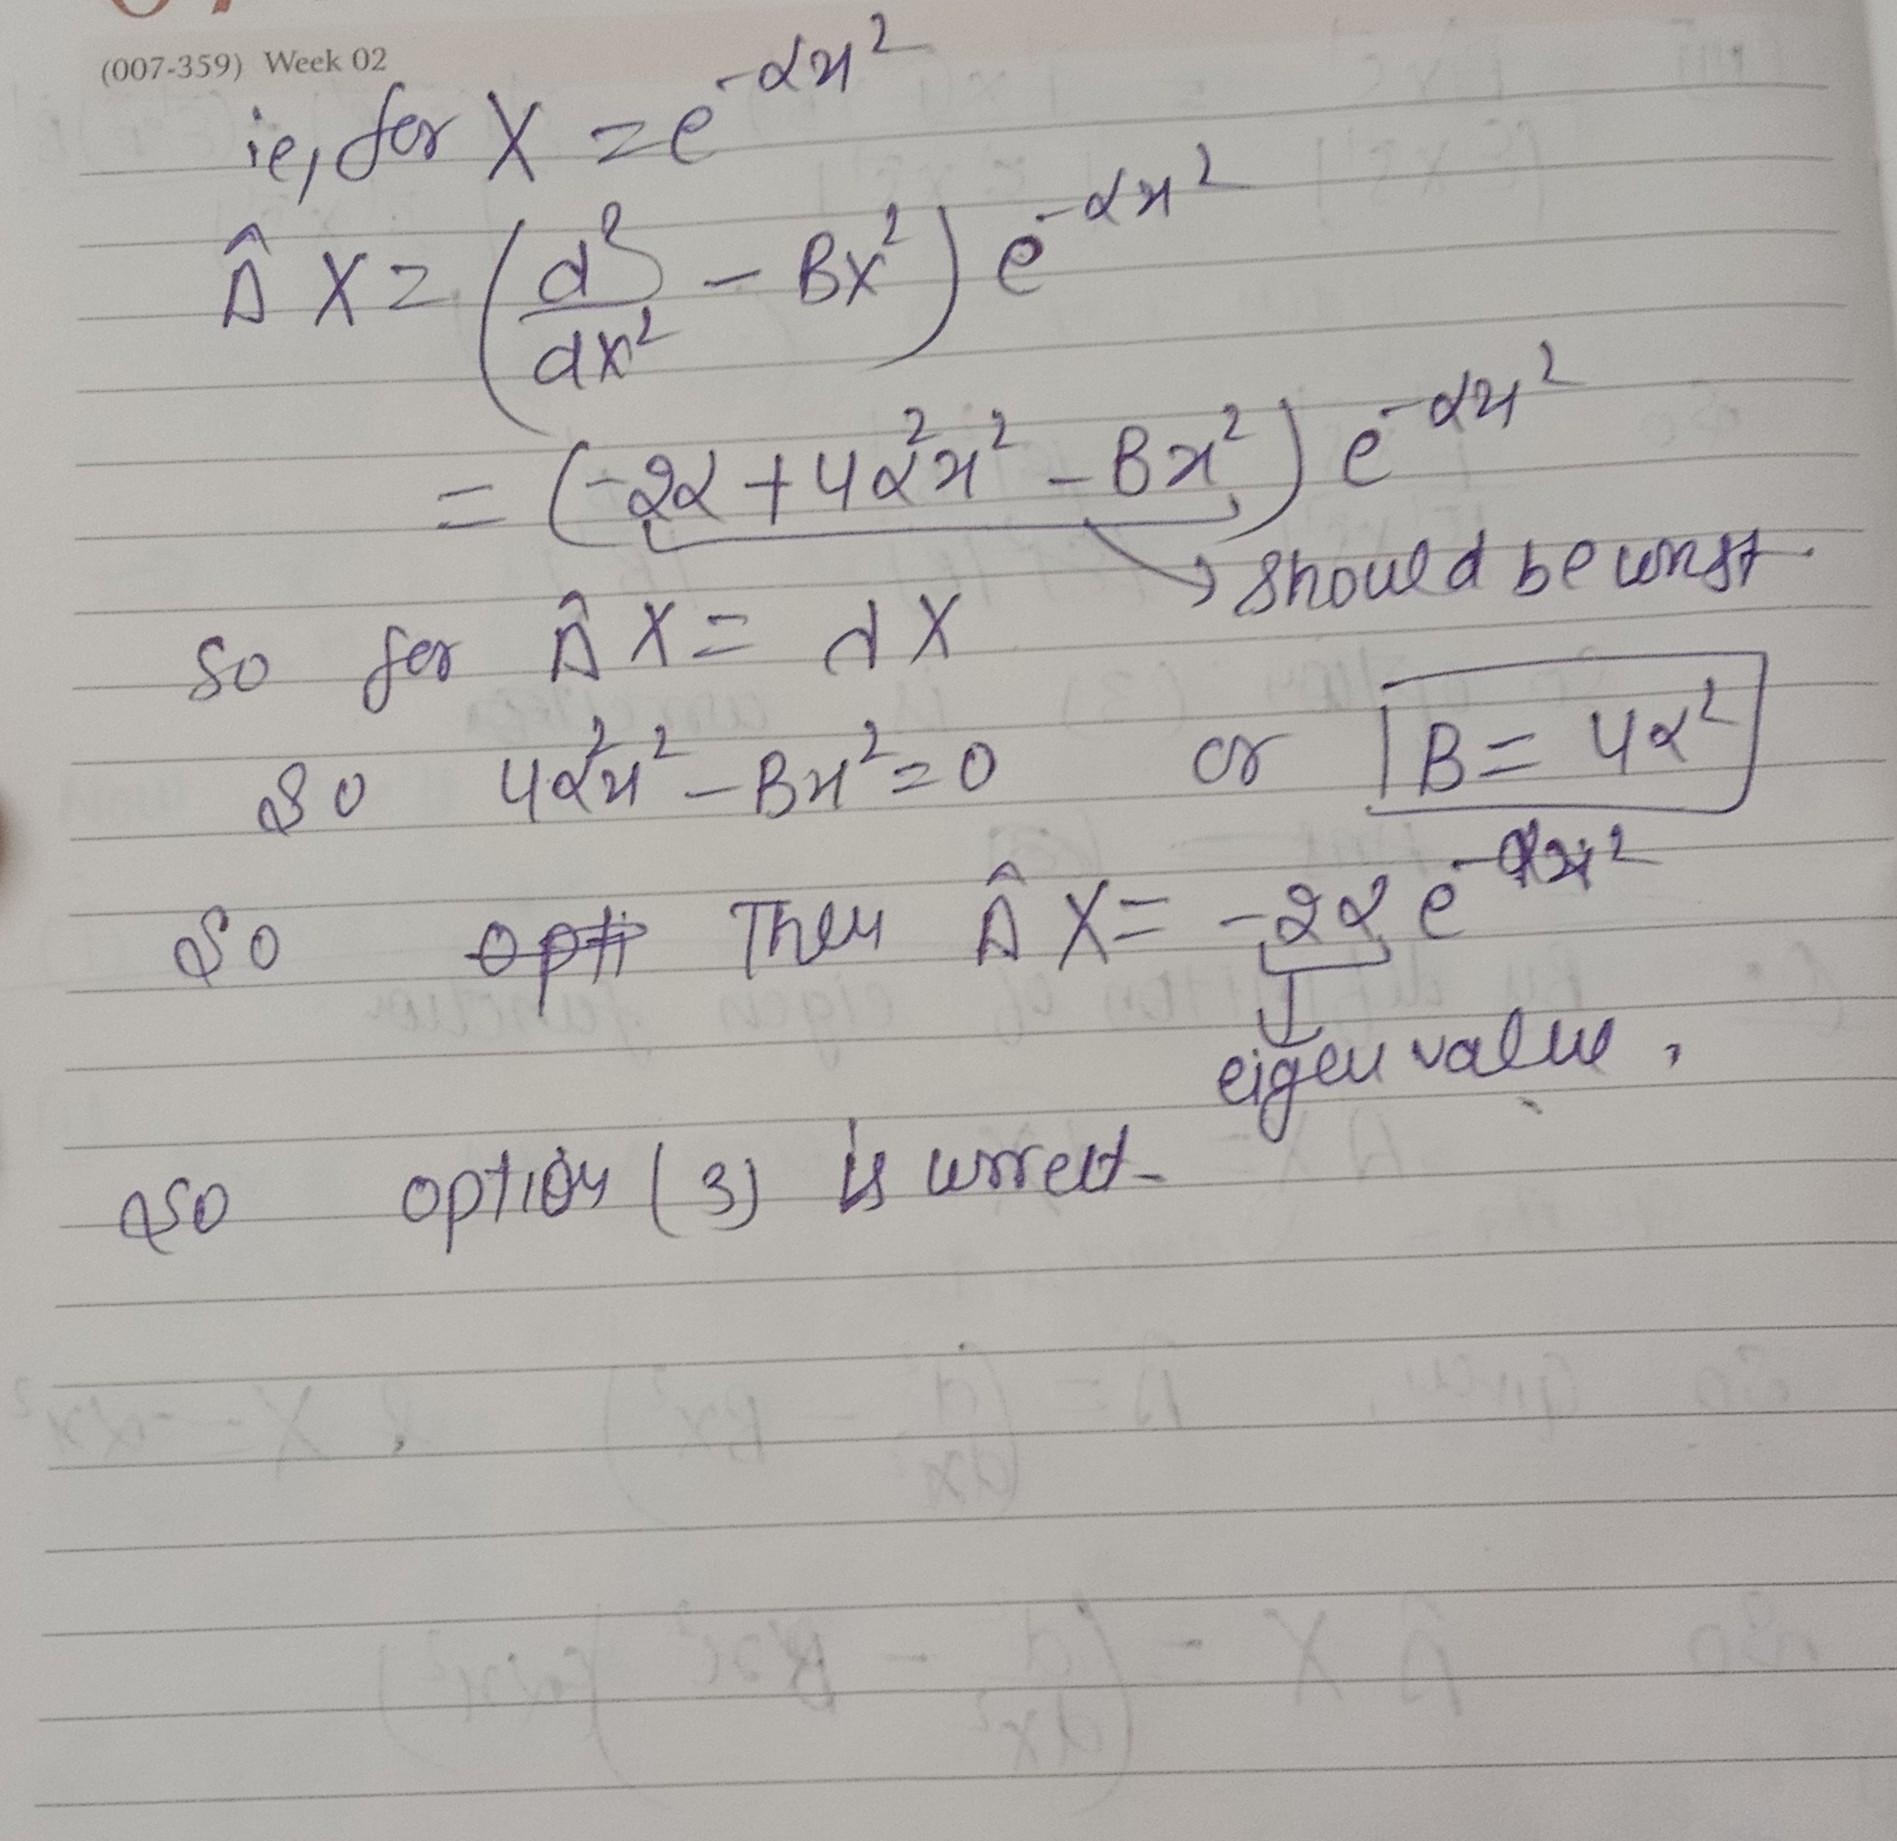 (007-359) Week 02
ie, for X = e^-αx²
Â X = (d²/dx² - Bx²) e^-αx²
= (-2α + 4α²x² - Bx²) e^-αx²
→ should be const.
so for Â X = α X
so 4α²x² - Bx² = 0 or B = 4α²
so opti Then Â X = -2α e^-αx²
↓
eigen value.
so option (3) is correct-